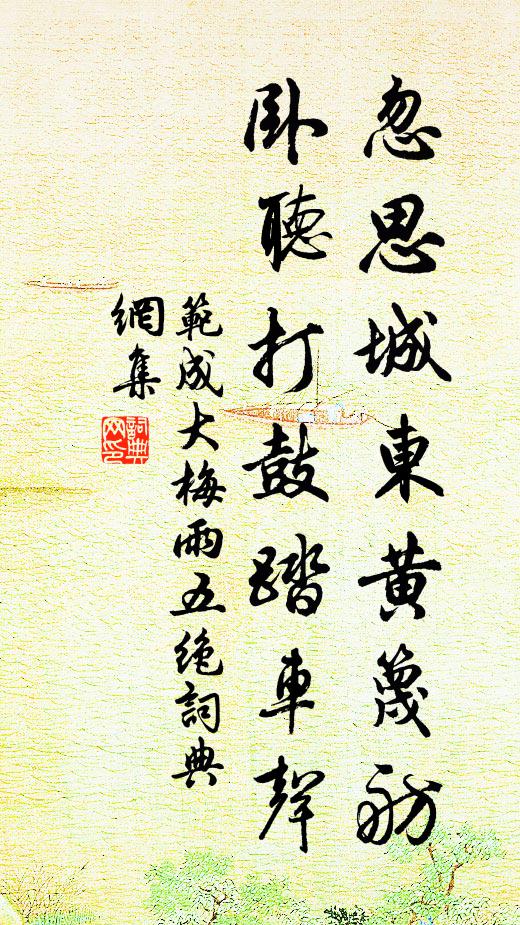 忽思城東黃篾舫
臥聽打鼓踏車聲
範成大梅雨五絶詞典
網集
詞典
网印